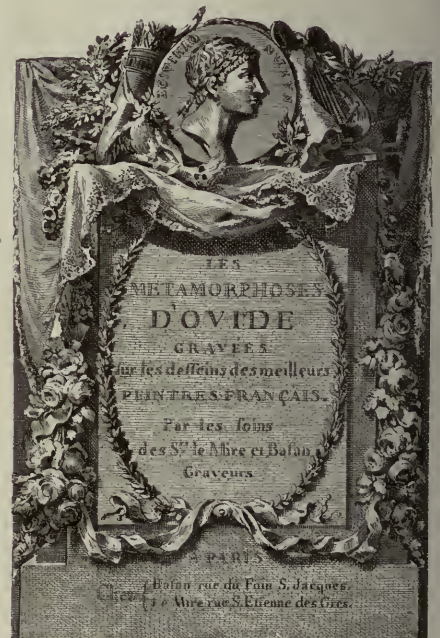 LES
METAMORPHOSES
D'OVIDE
GRAVÉES
sur les desseins des meilleurs
PEINTRES FRANÇAIS.
Par les soins
des S.rs le Mire et Basan
Graveurs.
A PARIS
Chez Basan rue du Foin S. Jacques.
le Mire rue S. Etienne des Grès.